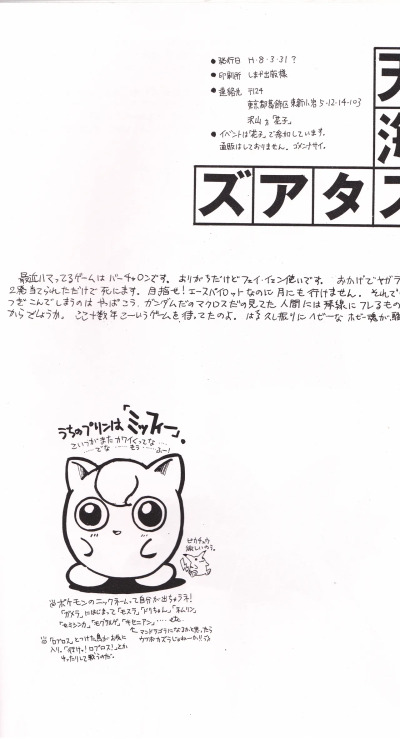 ●発行日 H・8・3・31?
●印刷所 しまや出版様
●連絡先 〒124
東京都葛飾区東新小岩5-12-14-103
沢山方「花子」
●イベントは「花子」で参加しています。
通販はしておりません。ゴメンナサイ。
天
海
ズアタス
最近ハマってるゲームはバーチャロンです。ありがちだけどフェイ・イェン使いです。おかげでヤガラ
2発当てられただけで死にます。目指せ!エースパイロットなのに月にも行けません。それで
つぎこんでしまうのはやっぱこう、ガンダムだのマクロスだの見てた人間には琴線にフレるもの
からでしょうか。ここ十数年こーいうゲームを待ってたのよ。はる久し振りにヘビーなホビー魂が
うちのプリンは「ミッフィー」。
こいつがまたカワイくってな……
でな……もう……ふー!
ピカチュウ
欲しいのう。
ポケモンのニックネームって自分が出ちゃうネ!
「ガメラ」にはじまって「モスラ」「ドリちゃん」「ホムリン」
「セミシンカ」「モグタルゲ」「キセニアン」……etc.
←マンドラゴラになるかと思ったら
ウツボカズラじゃねーか!!って
「ロプロス」とつけた鳥がお気に
入り。「行け!ロプロス!」とか
そったりして戦うのだ。